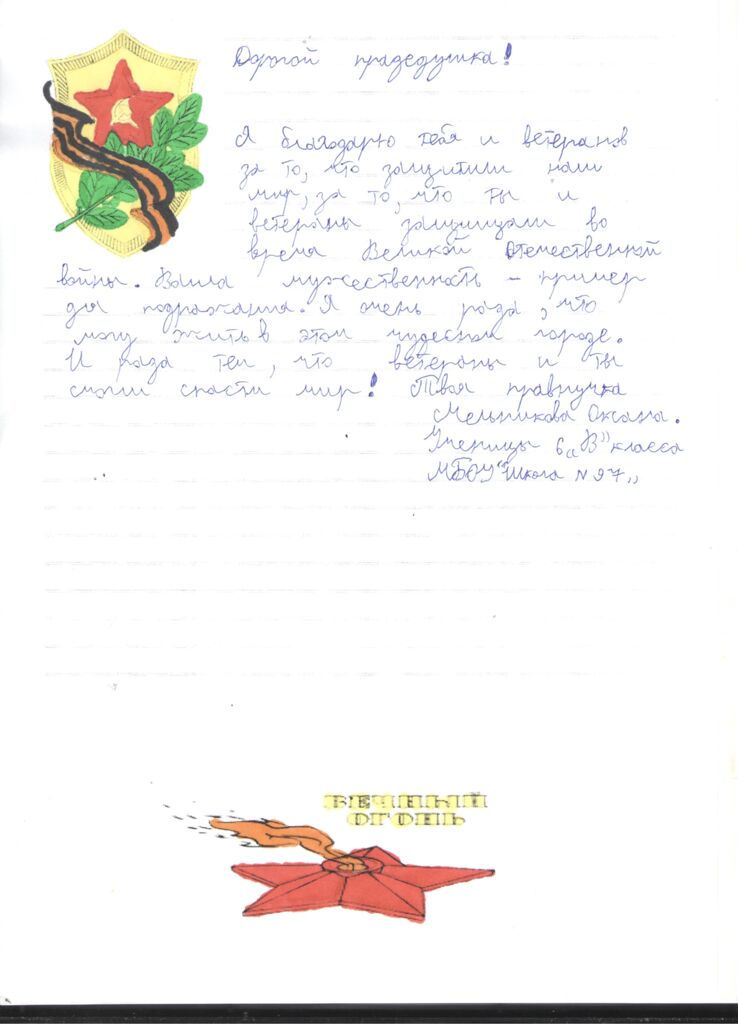 Дорогой прадедушка!
Я благодарю тебя и ветеранов
за то, что защитили наш
мир, за то, что ты и
ветераны защищали во
время Великой Отечественной
войны. Ваша мужественность – пример
для подражания. Я очень рада, что
могу жить в этом чудесном городе.
И рада тем, что ветераны и ты
смогли спасти мир! Твоя правнучка
Мельникова Оксана.
Ученицы 6 „В” класса
МБОУ “Школа N 97„
ВЕЧНЫЙ
ОГОНЬ